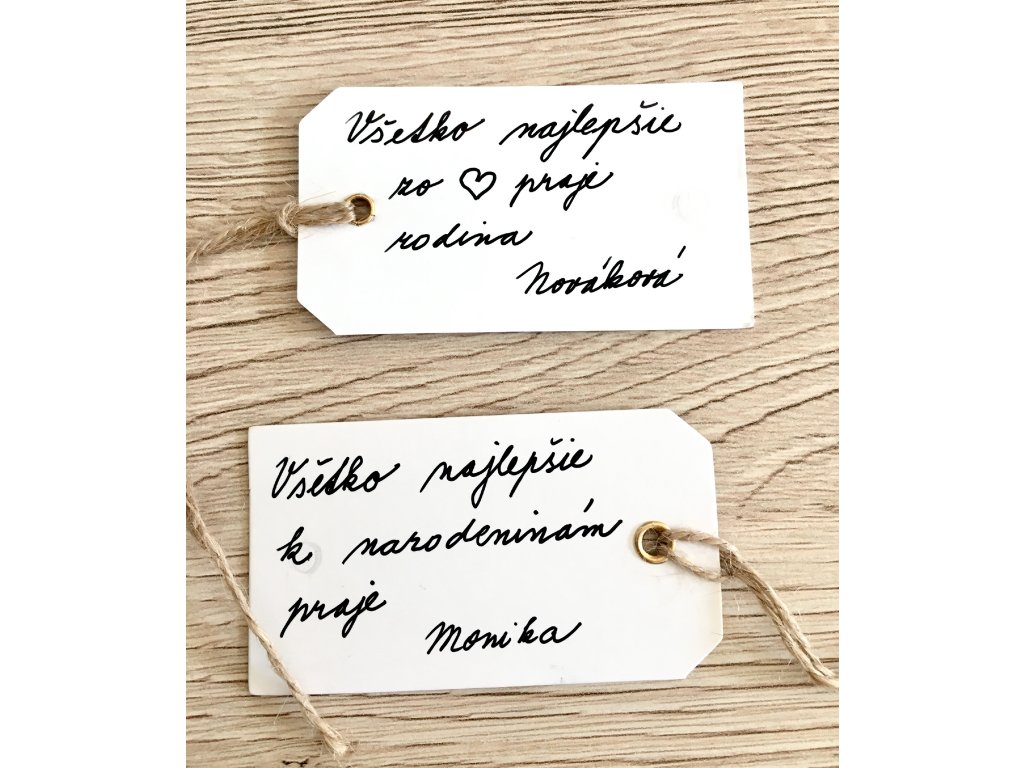 Všetko najlepšie
zo ♡ praje
rodina
Nováková
Všetko najlepšie
k narodeninám
praje
Monika